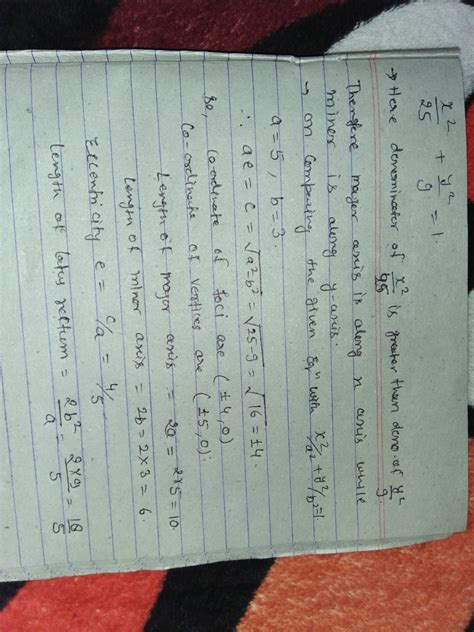 x²/25 + y²/9 = 1.
→ Here denominator of x²/25 is greater than deno. of y²/9
Therefore major axis is along x axis while
minor is along y-axis.
→ on comparing the given Eqⁿ with x²/a² + y²/b² = 1
a = 5, b = 3.
∴ ae = c = √a²-b² = √25-9 = √16 = ±4.
So, Co-ordinate of foci are (±4,0)
Co-ordinate of vertices are (±5,0).
Length of major axis = 2a = 2×5 = 10.
Length of minor axis = 2b = 2×3 = 6.
Eccentricity e = c/a = 4/5
Length of latus rectum = 2b²/a = 2×9/5 = 18/5